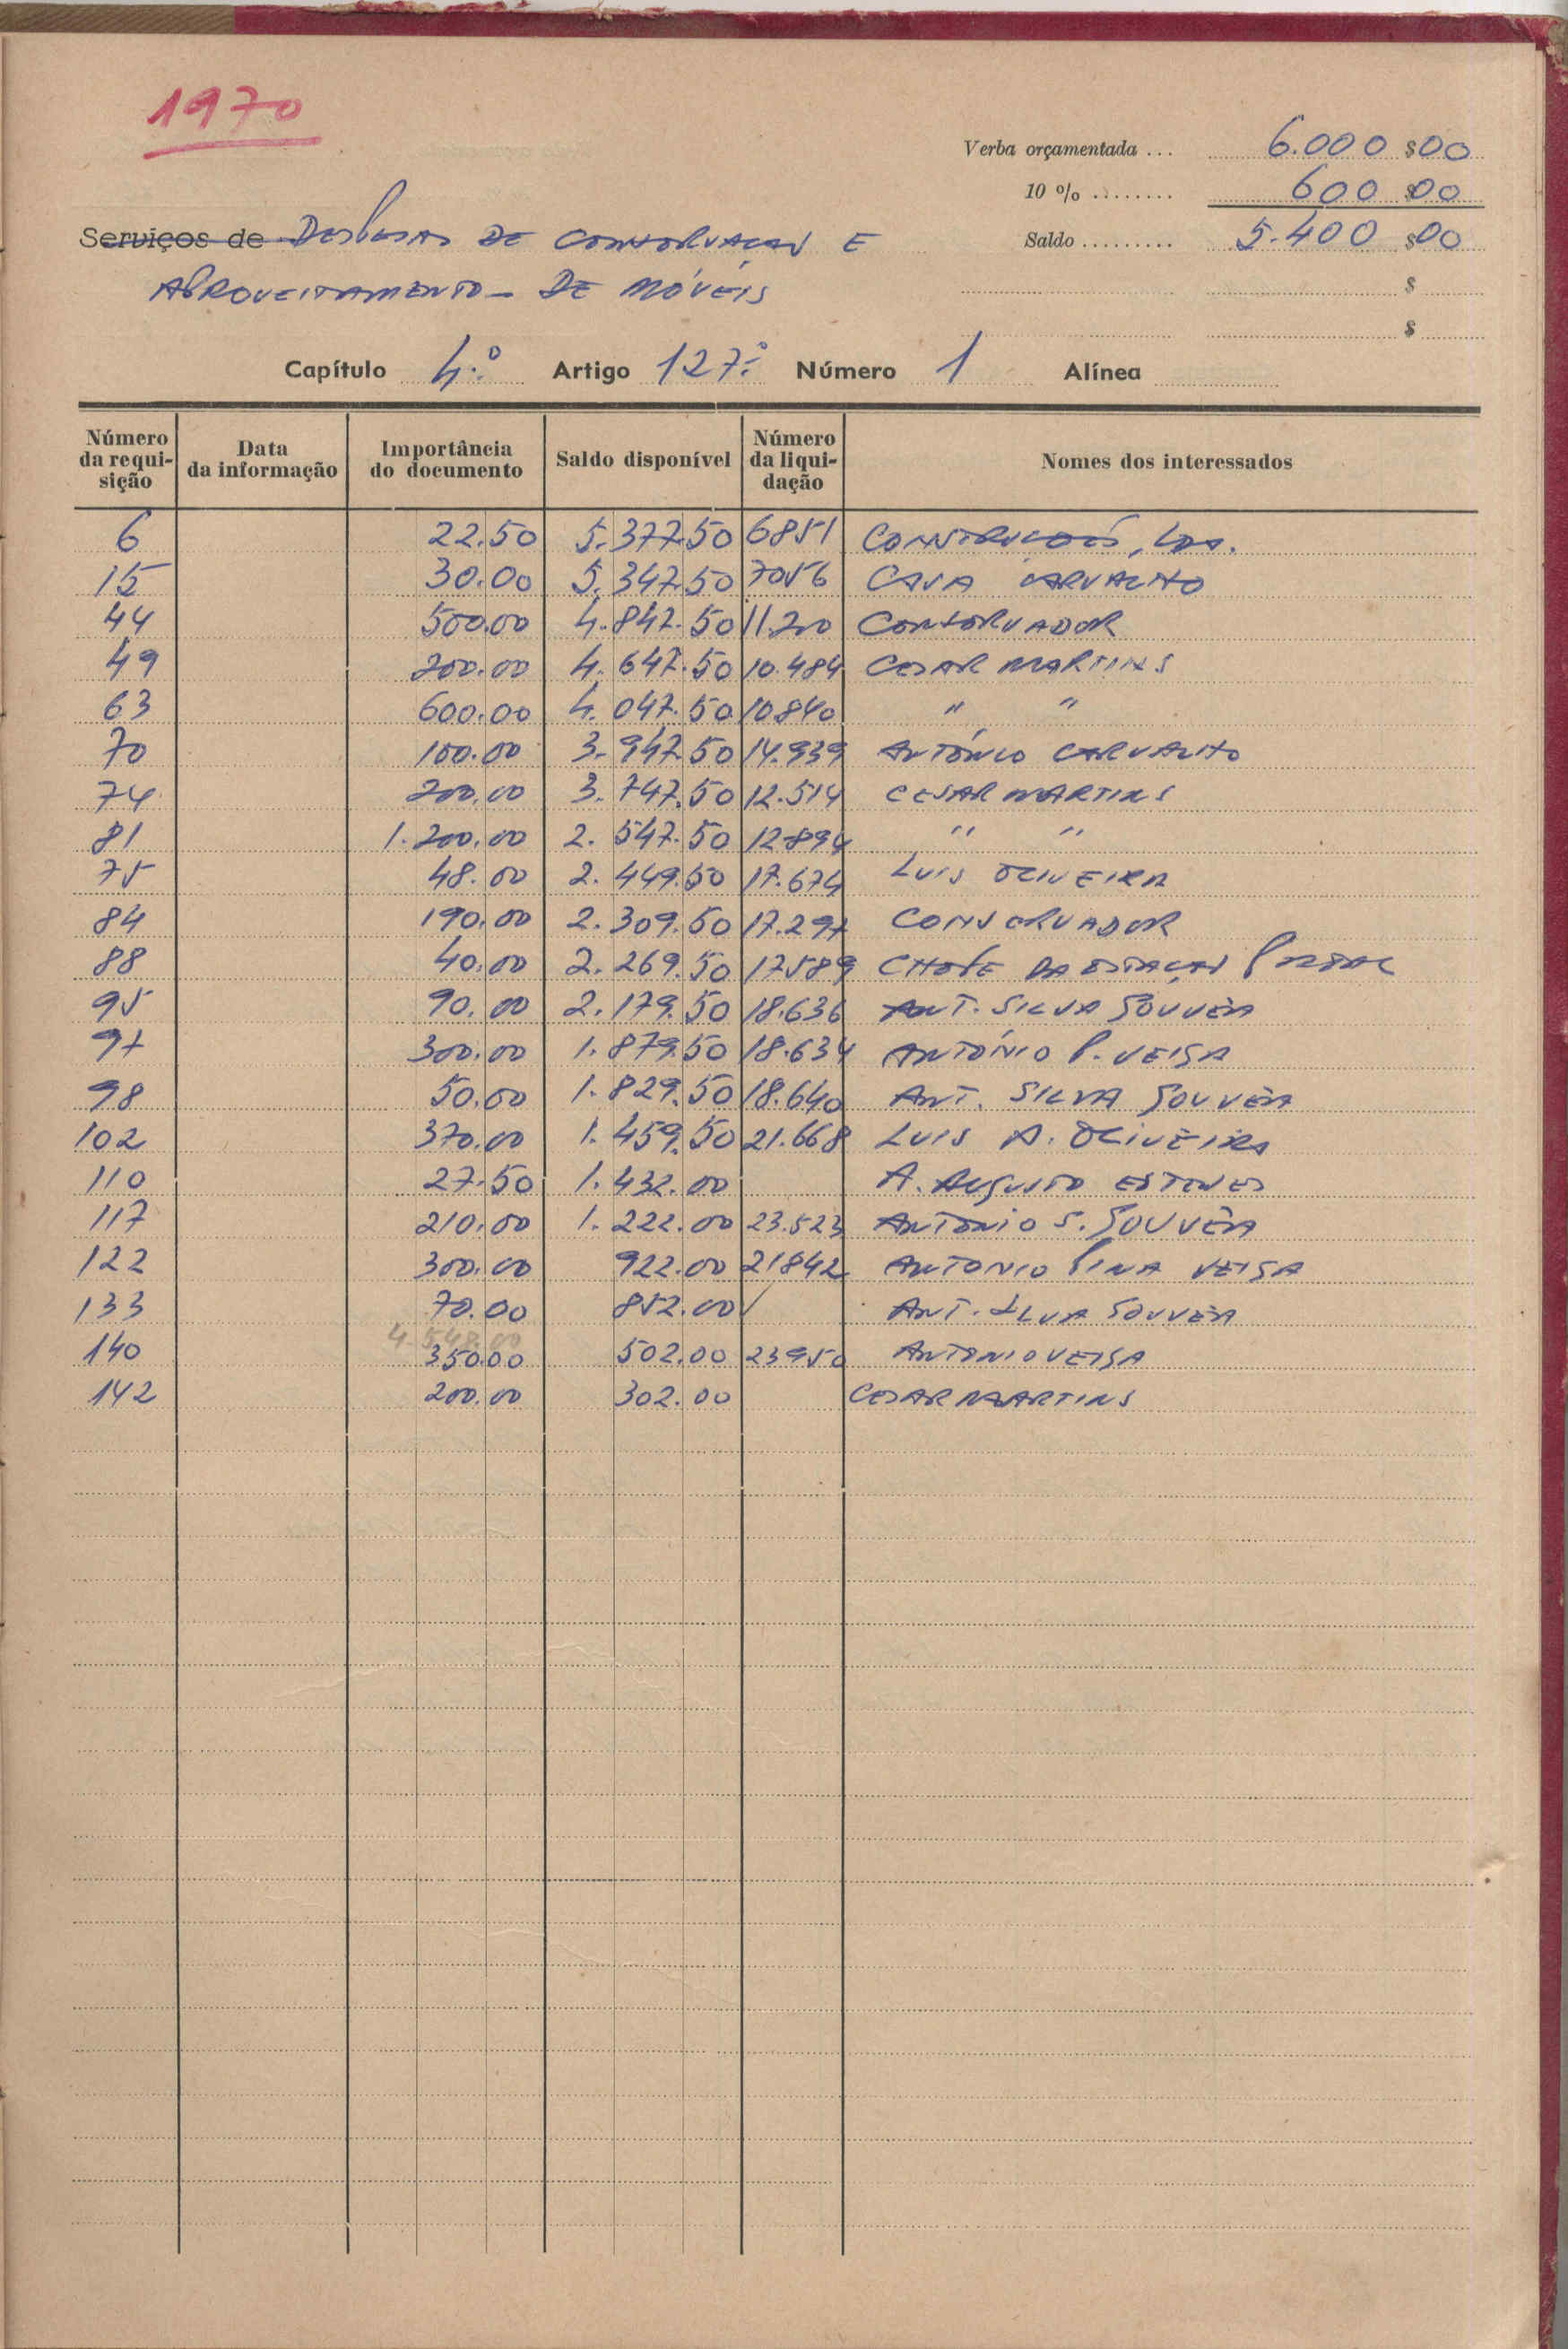 1970
Verba orçamentada ... 6.000 $00
10 % ........ 600 $00
Serviços de DESPESAS DE CONSERVAÇÃO E Saldo ......... 5.400 $00
APROVEITAMENTO - DE MÓVEIS $
$
Capítulo 4.º Artigo 127.º Número 1 Alínea
Número da requi-sição Data da informação Importância do documento Saldo disponível Número da liqui-dação Nomes dos interessados
6 22.50 5.377.50 6851 CONSTRUÇÕES, LDA.
15 30.00 5.347.50 7056 CASA CARVALHO
44 500.00 4.847.50 11.200 CONSERVADOR
49 200.00 4.647.50 10.484 CESAR MARTINS
63 600.00 4.047.50 10840 " "
70 100.00 3.947.50 14.939 ANTÓNIO CARVALHO
74 200.00 3.747.50 12.514 CESAR MARTINS
81 1.200.00 2.547.50 12894 " "
75 48.00 2.449.50 17.674 LUIS OLIVEIRA
84 190.00 2.309.50 17.297 CONSERVADOR
88 40.00 2.269.50 17589 CHEFE DA ESTAÇÃO POSTAL
95 90.00 2.179.50 18.636 ANT. SILVA GOUVEIA
97 300.00 1.879.50 18.634 ANTÓNIO P. VEIGA
98 50.00 1.829.50 18.640 ANT. SILVA GOUVEIA
102 370.00 1.459.50 21.668 LUIS A. OLIVEIRA
110 27.50 1.432.00 A. AUGUSTO ESTEVES
117 210.00 1.222.00 23.523 ANTONIO S. GOUVEIA
122 300.00 922.00 21842 ANTONIO PINA VEIGA
133 70.00 852.00 ANT. SILVA GOUVEIA
4.548.00
140 350.00 502.00 23950 ANTONIO VEIGA
142 200.00 302.00 CESAR MARTINS